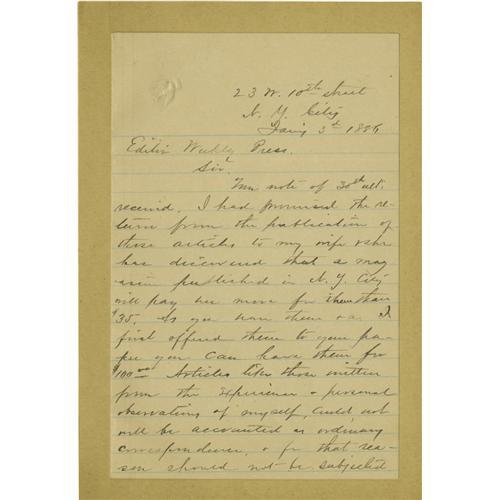 23 W. 10th street
N. Y. City
Jan'y 3d 1886
Editor Weekly Press.
Sir
Your note of 30th ult.
received. I had promised the re-
turn from the publication of
these articles to my wife & she
has discovered that a mag
azine published in N. Y. City
will pay her more for them than
$35. As you have them & as I
first offered them to your pa-
per you can have them for
$100.00 Articles like those written
from the experience & personal
observations of myself, could not
well be accounted as ordinary
correspondence, & for that rea-
son should not be subjected